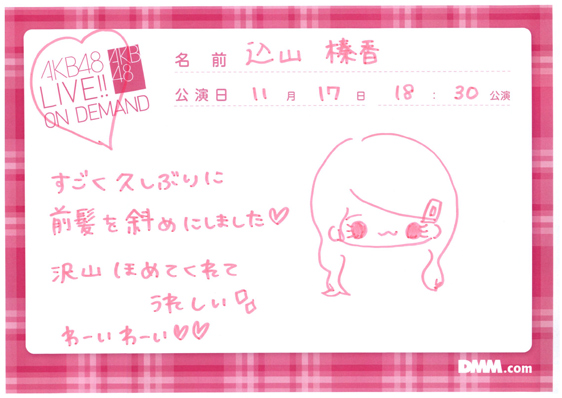 AKB48
LIVE!!
ON DEMAND
AKB
48
名前 込山 榛香
公演日 11月 17日 18:30公演
すごく久しぶりに
前髪を斜めにしました♡
沢山ほめてくれて
うれしい
わーいわーい♡♡
DMM.com